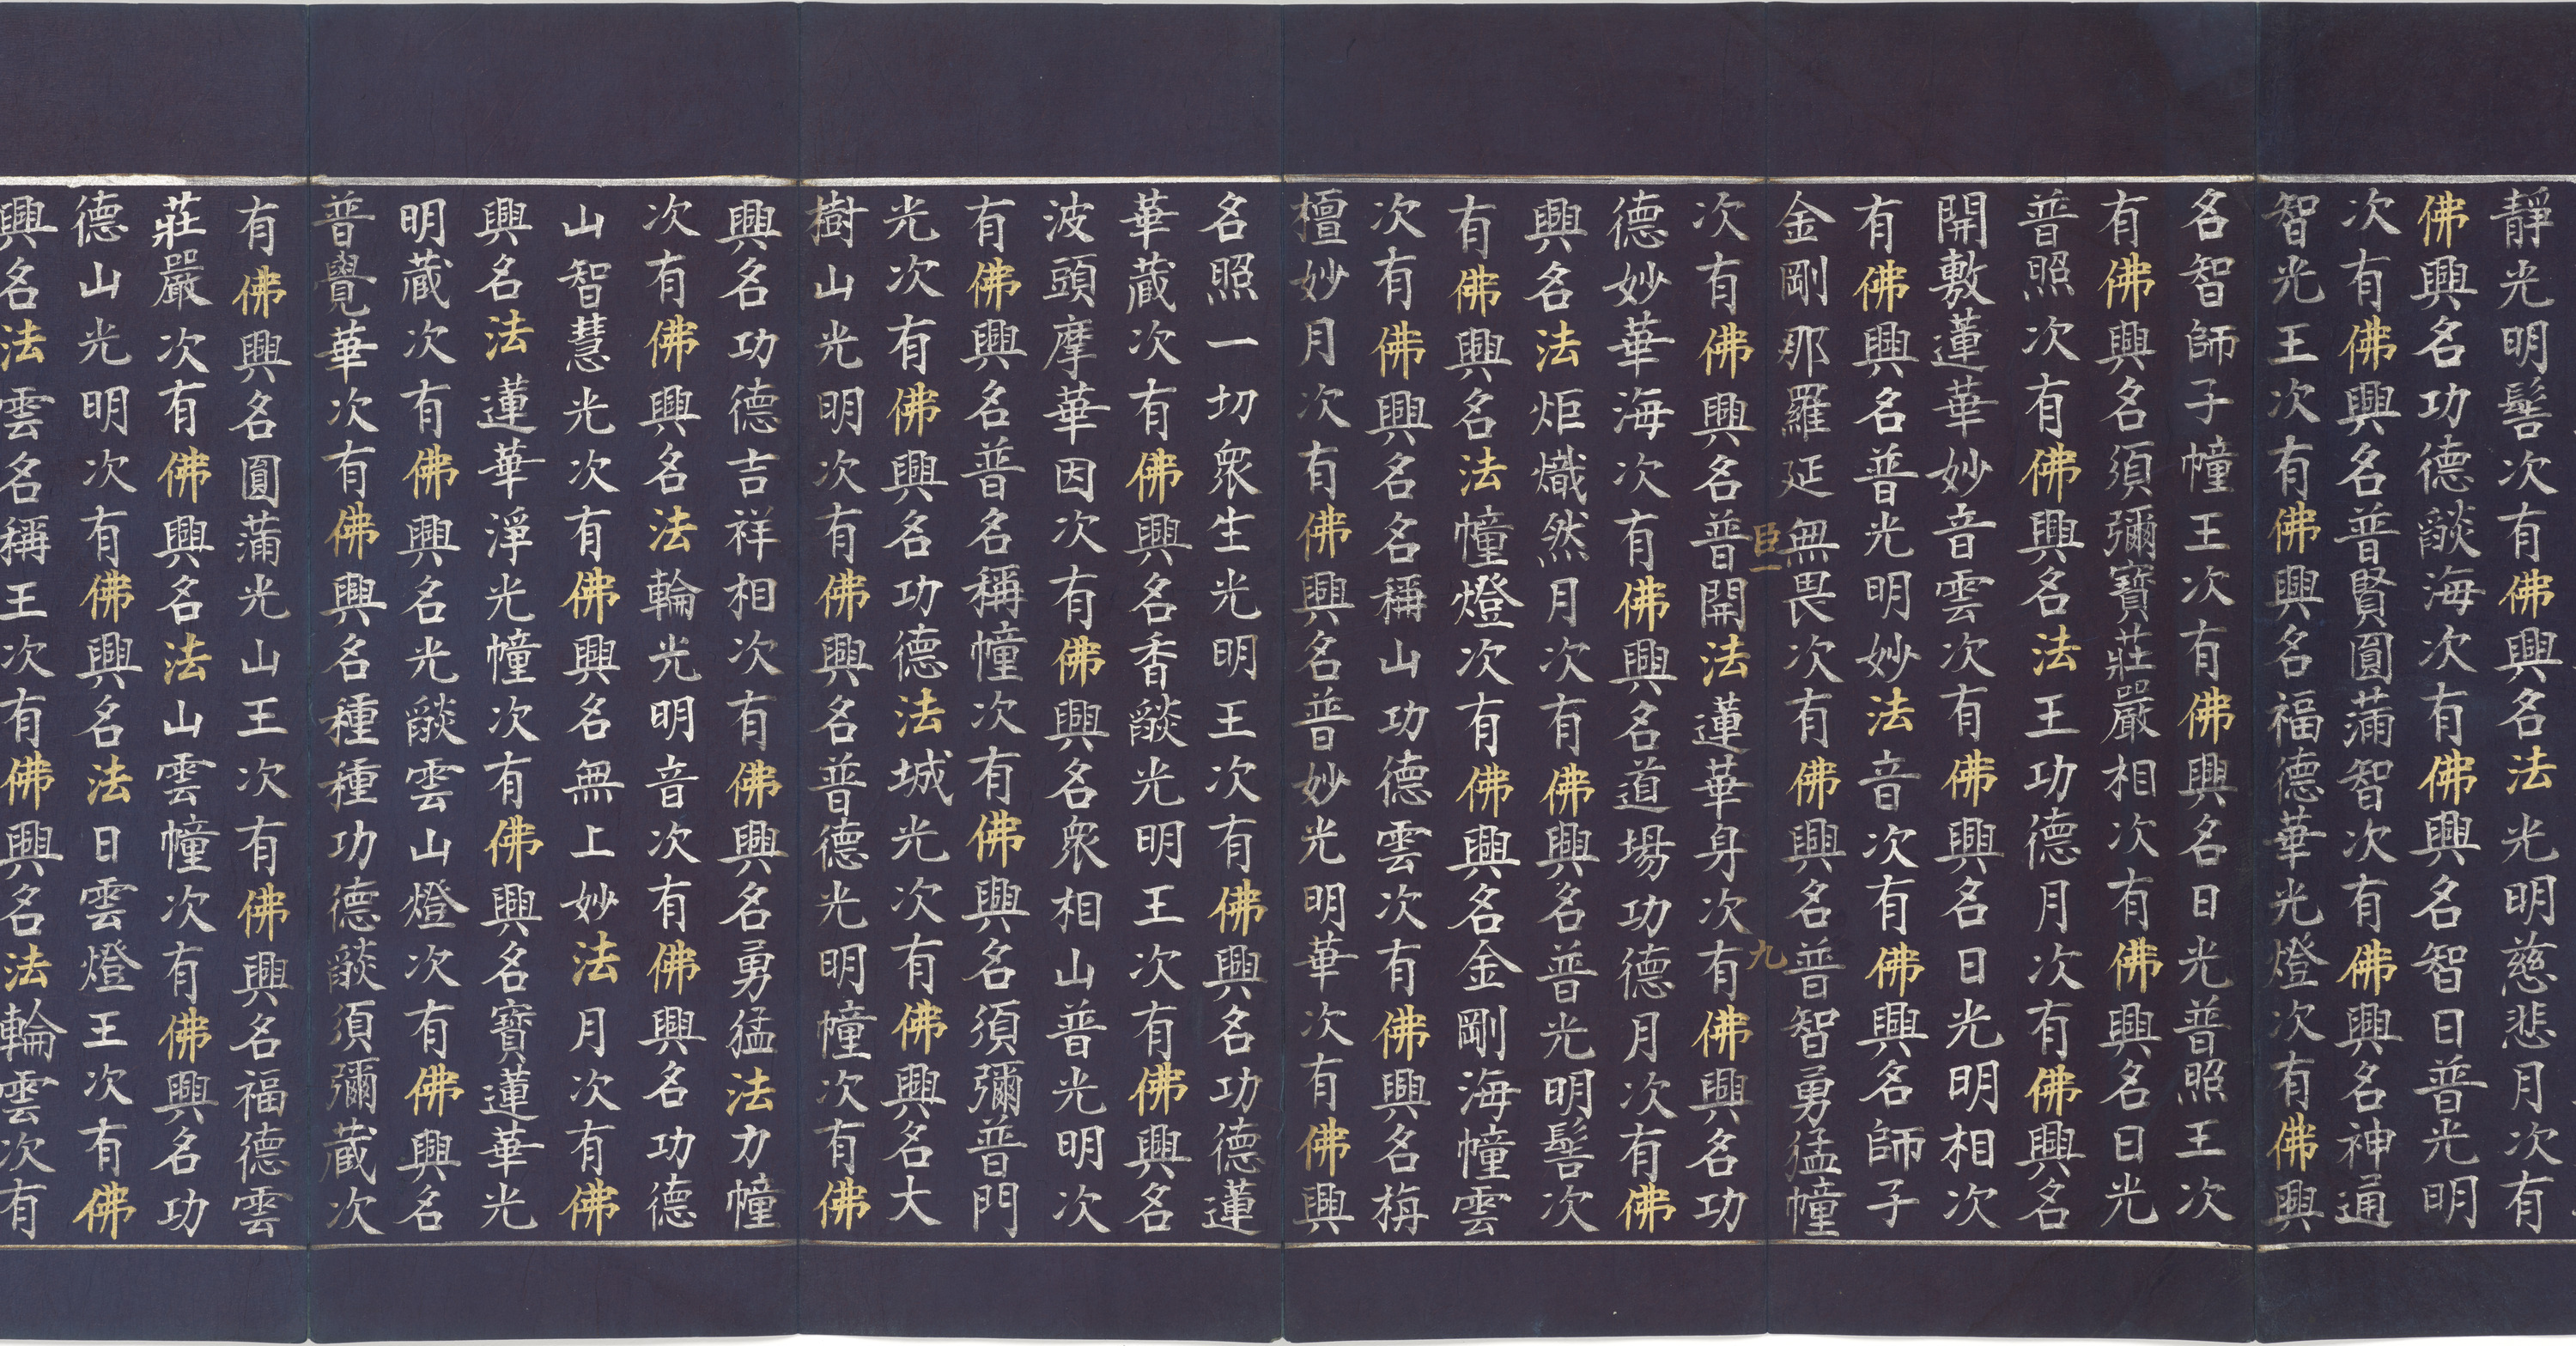 靜光明髻次有佛興名法光明慈悲月次有
佛興名功德燄海次有佛興名智日普光明
次有佛興名普賢圓滿智次有佛興名神通
智光王次有佛興名福德華光燈次有佛興
名智師子幢王次有佛興名日光普照王次
有佛興名須彌寶莊嚴相次有佛興名日光
普照次有佛興名法王功德月次有佛興名
開敷蓮華妙音雲次有佛興名日光明相次
有佛興名普光明妙法音次有佛興名師子
金剛那羅延無畏次有佛興名普智勇猛幢
臣一 九
次有佛興名普開法蓮華身次有佛興名功
德妙華海次有佛興名道場功德月次有佛
興名法炬熾然月次有佛興名普光明髻次
有佛興名法幢燈次有佛興名金剛海幢雲
次有佛興名名稱山功德雲次有佛興名栴
檀妙月次有佛興名普妙光明華次有佛興
名照一切衆生光明王次有佛興名功德蓮
華藏次有佛興名香燄光明王次有佛興名
波頭摩華因次有佛興名衆相山普光明次
有佛興名普名稱幢次有佛興名須彌普門
光次有佛興名功德法城光次有佛興名大
樹山光明次有佛興名普德光明幢次有佛
興名功德吉祥相次有佛興名勇猛法力幢
次有佛興名法輪光明音次有佛興名功德
山智慧光次有佛興名無上妙法月次有佛
興名法蓮華淨光幢次有佛興名寶蓮華光
明藏次有佛興名光燄雲山燈次有佛興名
普覺華次有佛興名種種功德燄須彌藏次
有佛興名圓滿光山王次有佛興名福德雲
莊嚴次有佛興名法山雲幢次有佛興名功
德山光明次有佛興名法日雲燈王次有佛
興名法雲名稱王次有佛興名法輪雲次有